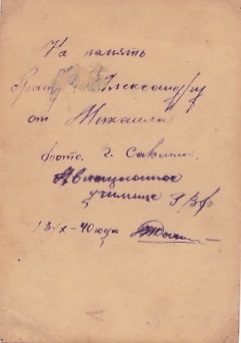 На память
брату Александру
от Михаила
фото. г.
Авиационное
училище
40 года